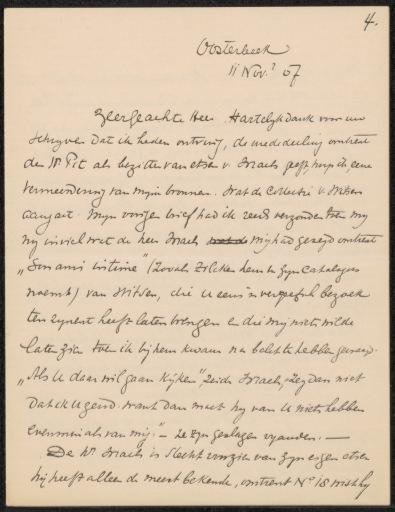 4.
Oosterbeek
11 Nov.r 07
Zeergeachte Heer. Hartelijk dank voor uw
schrijven dat ik heden ontving, de mededeeling omtrent
den Hr Pit als bezitter van etsen v. Israels geeft mij ook eene
vermeerdering van mijn bronnen. Wat de Collectie v. Witsen
aangaat. Mijn vorigen brief had ik reeds verzonden toen mij
inviel wat de heer Israels mij had gezegd omtrent
"Son ami intime" (zoals Zilcken hem in zijn catalogus
noemt) van Witsen, die U eens 'n vergeefsch bezoek
ten zijnent heeft laten brengen en die mij niets wilde
laten zien toen ik bij hem kwam na belet te hebben gevraagd.
"Als U daar wil gaan kijken", zeide Israels, "zeg dan niet
dat ik U zend. want dan moet hij van U niets hebben
evenmin als van mij." – ze zijn geslagen vijanden. —
De Hr Israels is slecht voorzien van zijn eigen etsen
hij heeft alleen de meest bekende, omtrent No 18 wist hij